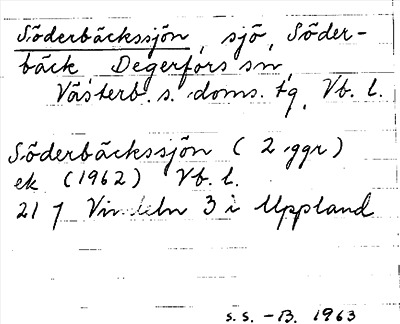 Söderbäckssjön, sjö, Söder-
bäck Degerfors sn,
Västerb. s. doms. tg, Vb. l.
Söderbäckssjön (2 ggr)
ek (1962) Vb. l.
21 J Vindeln 3 i Uppland
s.s. - B. 1963